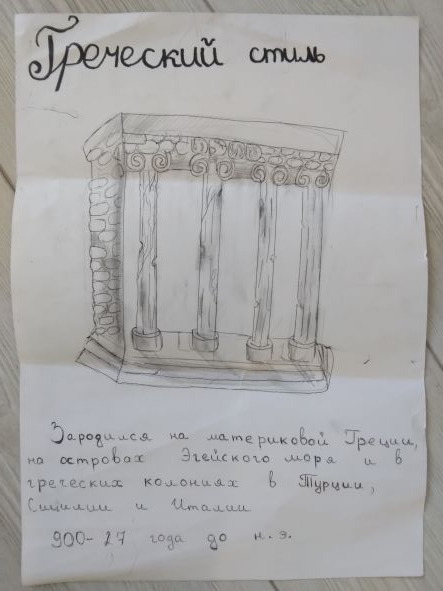 Греческий стиль
Зародился на материковой Греции,
на островах Эгейского моря и в
греческих колониях в Турции,
Сицилии и Италии
900-27 года до н.э.